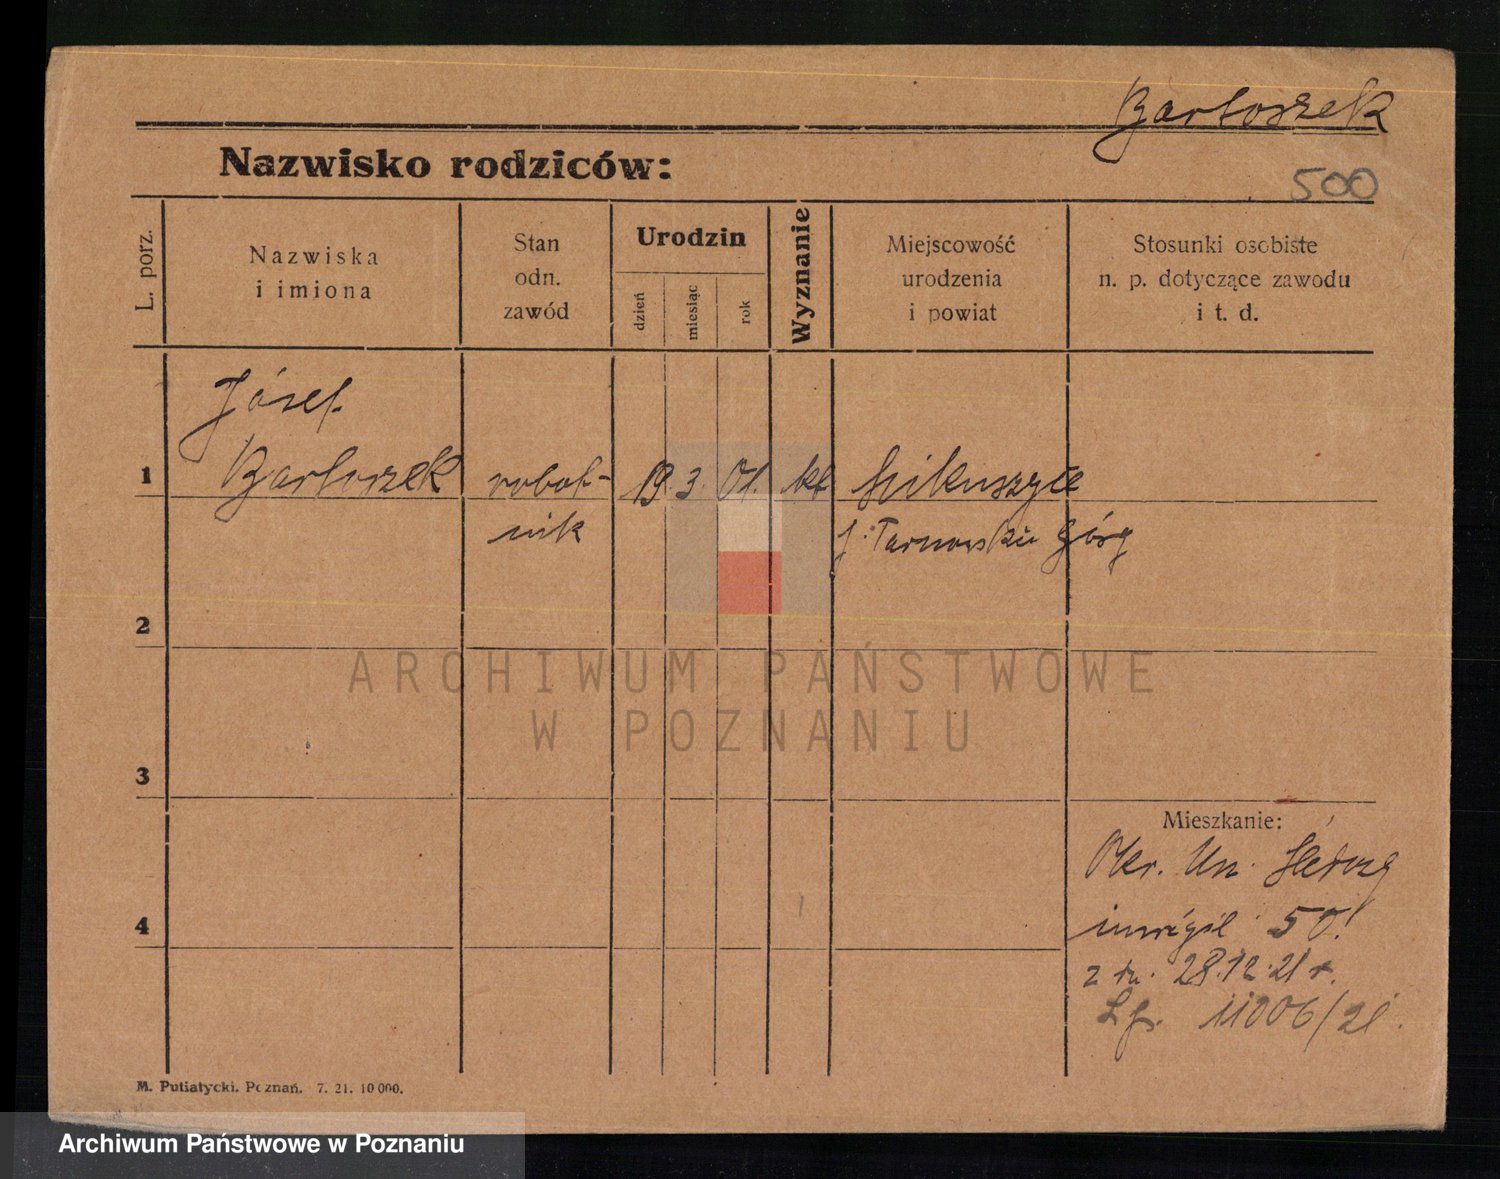 Bartoszek
Nazwisko rodziców:
500
L. porz.
Nazwiska
i imiona
Stan
odn.
zawód
Urodzin
dzień
miesiąc
rok
Wyznanie
Miejscowość
urodzenia
i powiat
Stosunki osobiste
n. p. dotyczące zawodu
i t. d.
1
Józef
Bartoszek
robot-
nik
19 3. 01. kt
Mikuszyce
Tarnowskie Góry
2
ARCHIWUM PAŃSTWOWE
W POZNANIU
3
Mieszkanie:
Okr. Un.
4
50!
z dn. 28.12.21 r.
11006/21.
M. Putiatycki. Poznań. 7. 21. 10 000.
Archiwum Państwowe w Poznaniu